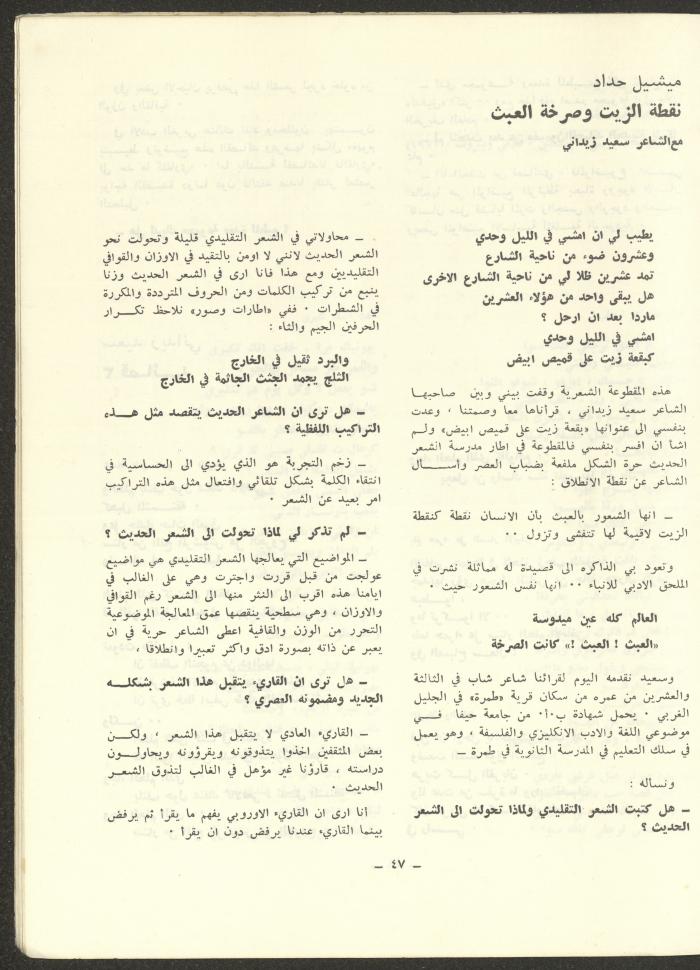 ميشيل حداد
نقطة الزيت وصرخة العبث
مع الشاعر سعيد زيداني
يطيب لي ان امشي في الليل وحدي
وعشرون ضوء من ناحية الشارع
تمد عشرين ظلا لي من ناحية الشارع الاخرى
هل يبقى واحد من هؤلاء العشرين
ماردا بعد ان ارحل ؟
امشي في الليل وحدي
كبقعة زيت على قميص ابيض
هذه المقطوعة الشعرية وقفت بيني وبين صاحبها
الشاعر سعيد زيداني ، قرأناها معا وصمتنا ، وعدت
بنفسي الى عنوانها «بقعة زيت على قميص ابيض» ولم
اشأ ان افسر بنفسي فالمقطوعة في اطار مدرسة الشعر
الحديث حرة الشكل ملفعة بضباب العصر وأســأل
الشاعر عن نقطة الانطلاق :
ــ انها الشعور بالعبث بان الانسان نقطة كنقطة
الزيت لاقيمة لها تتفشى وتزول ٠٠
وتعود بي الذاكره الى قصيدة له مماثلة نشرت في
الملحق الادبي للانباء ٠٠ انها نفس الشعور حيث ٠
العالم كله عين ميدوسة
«العبث ! العبث !» كانت الصرخة
وسعيد نقدمه اليوم لقرائنا شاعر شاب في الثالثة
والعشرين من عمره من سكان قرية «طمرة» في الجليل
الغربي ٠ يحمل شهادة ب٠أ٠ من جامعة حيفا فــي
موضوعي اللغة والادب الانكليزي والفلسفة ، وهو يعمل
في سلك التعليم في المدرسة الثانوية في طمرة ــ
ونسأله :
ــ هل كتبت الشعر التقليدي ولماذا تحولت الى الشعر
الحديث ؟
ــ محاولاتي في الشعر التقليدي قليلة وتحولت نحو
الشعر الحديث لانني لا اومن بالتقيد في الاوزان والقوافي
التقليديين ومع هذا فانا ارى في الشعر الحديث وزنا
ينبع من تركيب الكلمات ومن الحروف المترددة والمكررة
في الشطرات ٠ ففي «اطارات وصور» نلاحظ تكــرار
الحرفين الجيم والثاء :
والبرد ثقيل في الخارج
الثلج يجمد الجثث الجاثمة في الخارج
ــ هل ترى ان الشاعر الحديث يتقصد مثل هــذه
التراكيب اللفظية ؟
ــ زخم التجربة هو الذي يؤدي الى الحساسية في
انتقاء الكلمة بشكل تلقائي وافتعال مثل هذه التراكيب
امر بعيد عن الشعر ٠
ــ لم تذكر لي لماذا تحولت الى الشعر الحديث ؟
ــ المواضيع التي يعالجها الشعر التقليدي هي مواضيع
عولجت من قبل قررت واجترت وهي على الغالب في
ايامنا هذه اقرب الى النثر منها الى الشعر رغم القوافي
والاوزان ، وهي سطحية ينقصها عمق المعالجة الموضوعية
التحرر من الوزن والقافية اعطى الشاعر حرية في ان
يعبر عن ذاته بصورة ادق واكثر تعبيرا وانطلاقا ،
ــ هل ترى ان القاريء يتقبل هذا الشعر بشكلــه
الجديد ومضمونه العصري ؟
ــ القاريء العادي لا يتقبل هذا الشعر ، ولكــن
بعض المثقفين اخذوا يتذوقونه ويقرؤونه ويحاولــون
دراسته ، قارؤنا غير مؤهل في الغالب لتذوق الشعــر
الحديث ٠
أنا ارى ان القاريء الاوروبي يفهم ما يقرأ ثم يرفض
بينما القاريء عندنا يرفض دون ان يقرأ ٠
ــ ٤٧ ــ